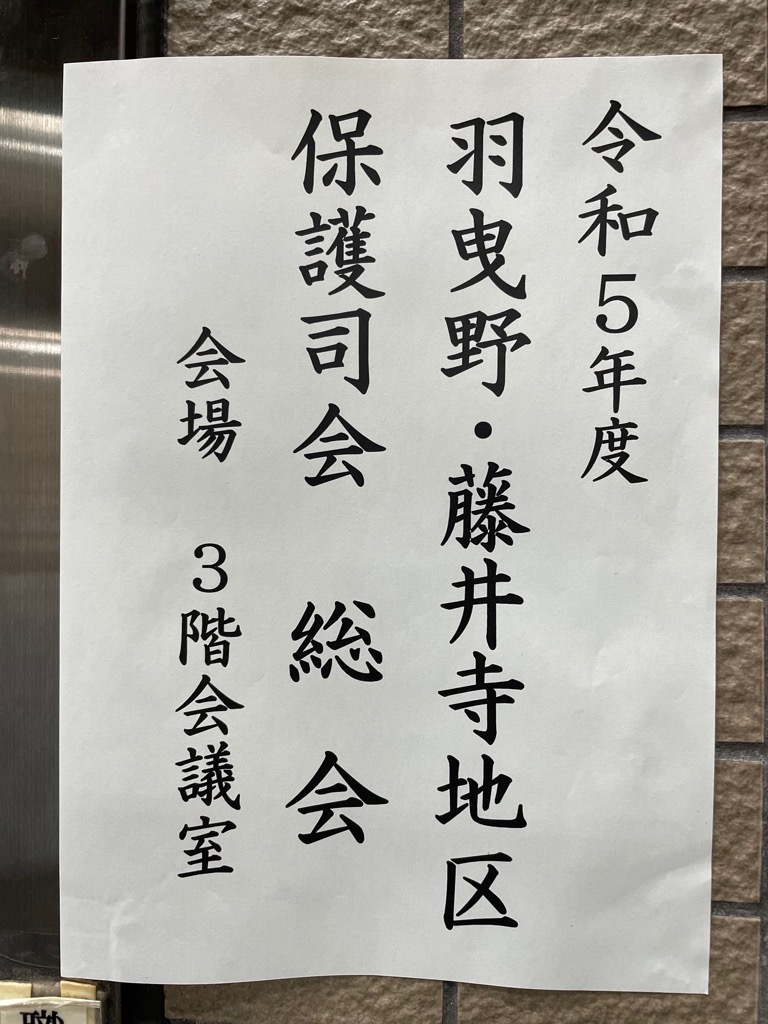 令和5年度
羽曳野・藤井寺地区
保護司会 総会
会場 3階会議室